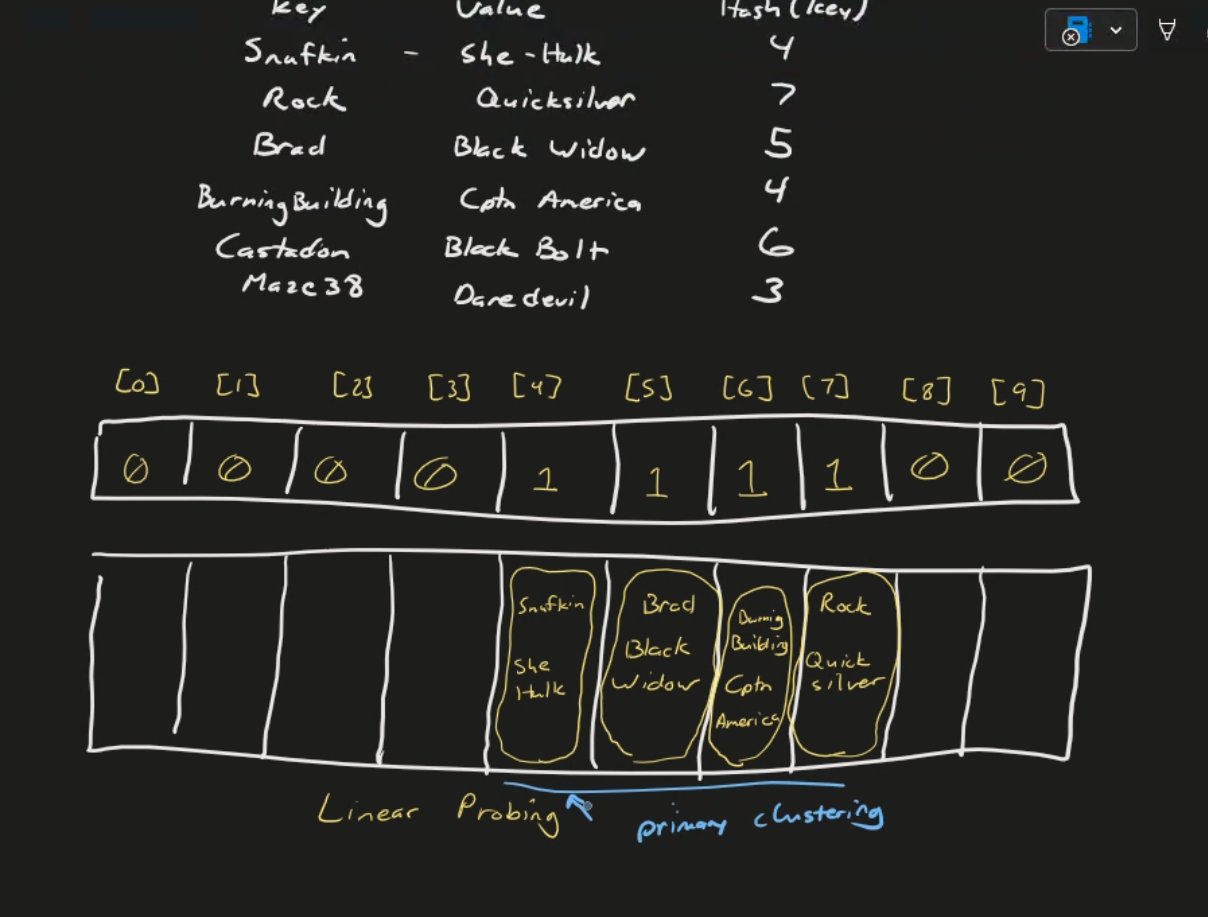 Key Value Hash(key)
Snufkin - She-Hulk 4
Rock Quicksilver 7
Brad Black Widow 5
BurningBuilding Cptn America 4
Castadon Black Bolt 6
Mazc38 Daredevil 3
[0] [1] [2] [3] [4] [5] [6] [7] [8] [9]
0 0 0 0 1 1 1 1 0 0
Snufkin
She
Hulk
Brad
Black
Widow
Burnig
Building
Cptn
America
Rock
Quick
silver
Linear Probing
primary clustering